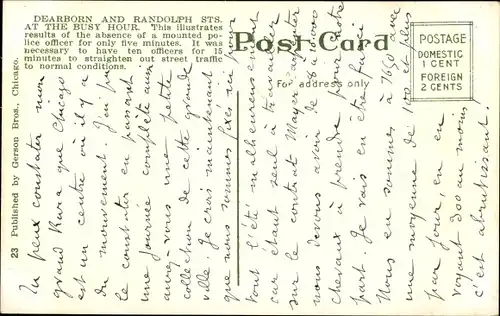 DEARBORN AND RANDOLPH STS.
AT THE BUSY HOUR. This illustrates
results of the absence of a mounted po-
lice officer for only five minutes. It was
necessary to have ten officers for 15
minutes to straighten out street traffic
to normal conditions.
Post Card
For address only
POSTAGE
DOMESTIC
1 CENT
FOREIGN
2 CENTS
23 Published by Gerson Bros., Chicago.
Tu peux constater mon
grand que Chicago
est un centre où il y a
du mouvement. J'ai pu
le constater en passant
une journée complète aussi
aurez vous une petite
collection de cette grande
ville. Je crois maintenant
que nous sommes fixés ici pour
tout l'été malheureusement
car étant seul à travailler
sur le contrat Mays
nous devons avoir de 8 à 10000
chevaux à prendre pour notre
part. Je vais en être farci
Nous en sommes à 760 avec
une moyenne de 100 et plus
par jour, en en
voyant 300 au moins
c'est abrutissant!